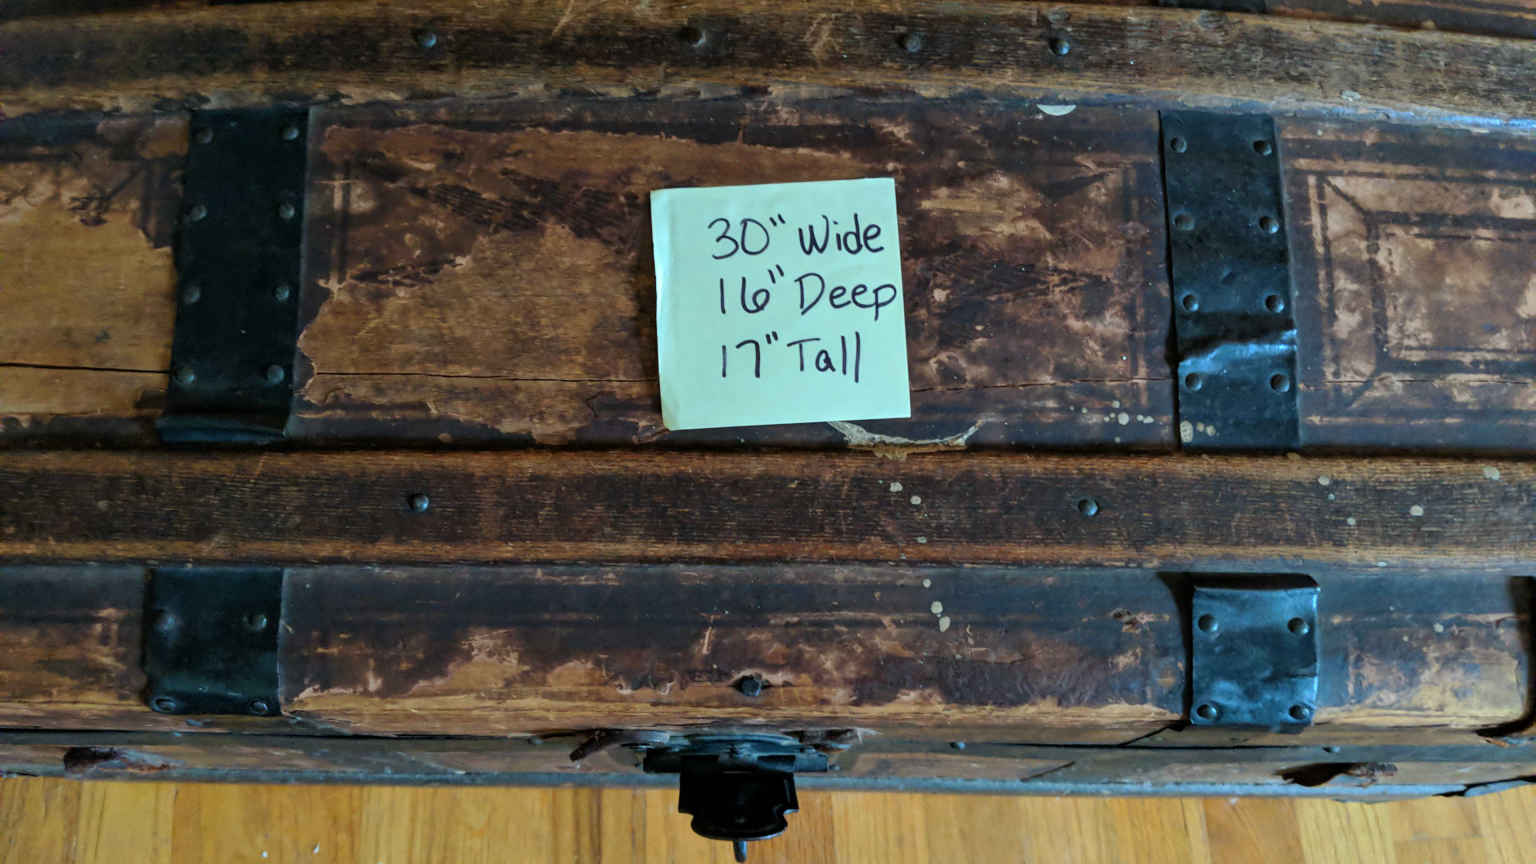 30" Wide
16" Deep
17" Tall